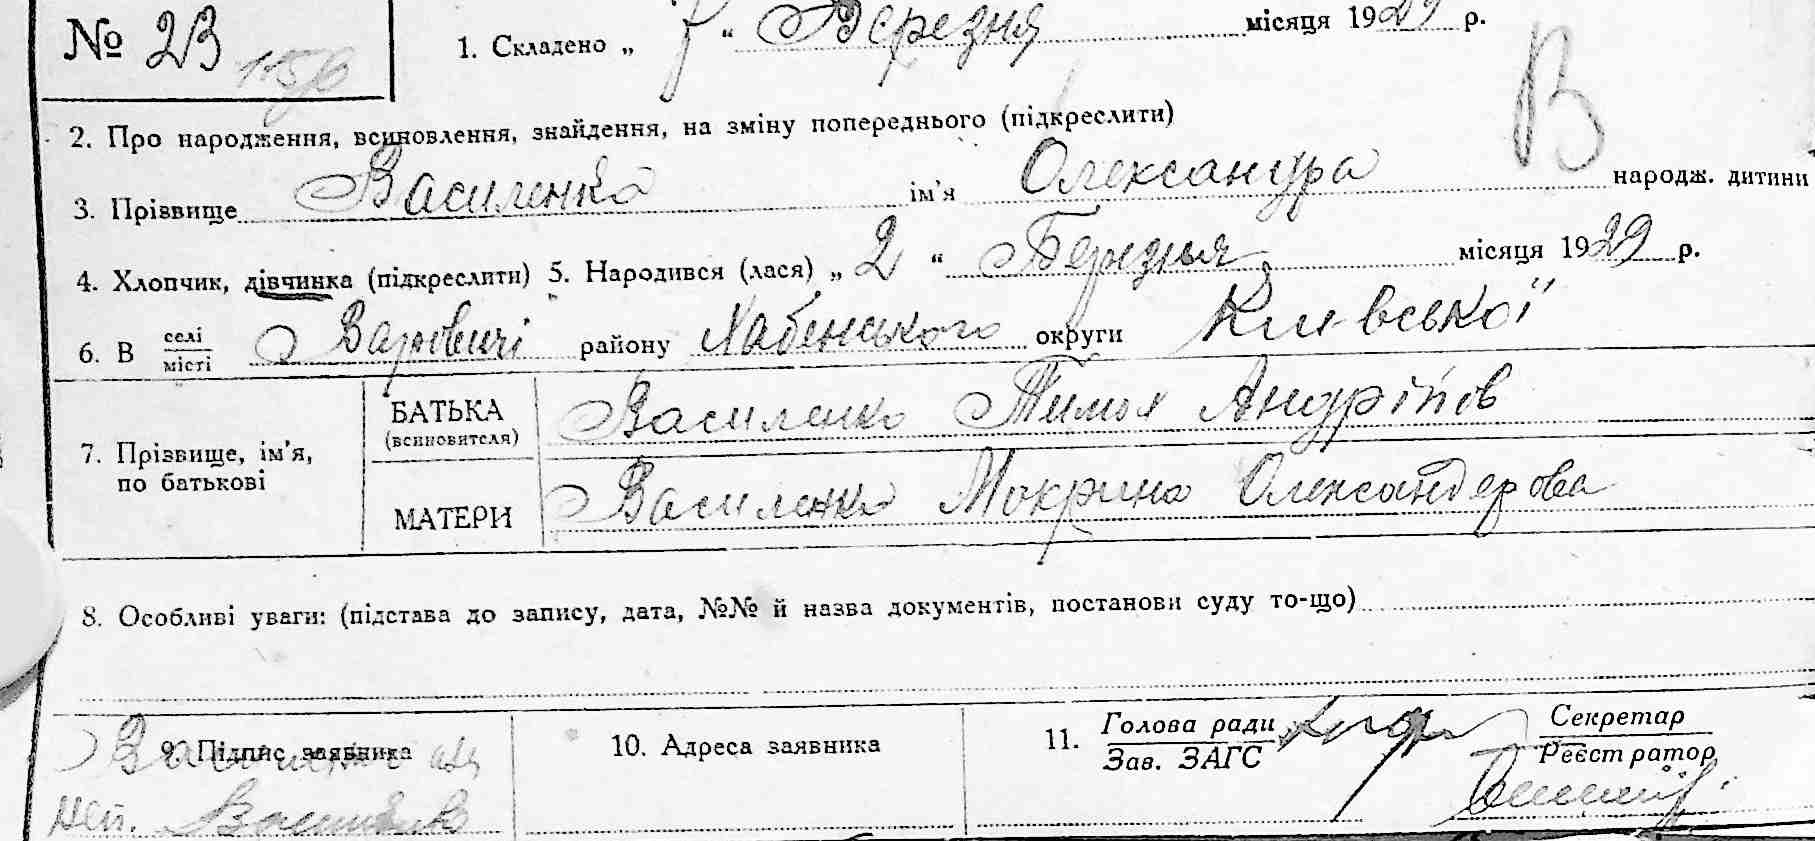 № 23
1. Складено „ 7 “ Березня місяця 1929 р.
В
2. Про народження, всиновлення, знайдення, на зміну попереднього (підкреслити)
3. Прізвище Василенко ім'я Олександра народж. дитини
4. Хлопчик, дівчинка (підкреслити) 5. Народився (лася) „ 2 “ Березня місяця 1929 р.
6. В селі/місті Варовичі району Хабенського округи Київської
7. Прізвище, ім'я, по батькові
БАТЬКА (всиновителя) Василенко Тимох Андріїв
МАТЕРИ Василенко Мокрина Олександерова
8. Особливі уваги: (підстава до запису, дата, №№ й назва документів, постанови суду то-що)
9. Підпис заявника
10. Адреса заявника
11. Голова ради/Зав. ЗАГС
Секретар/Реєстратор
Василенко